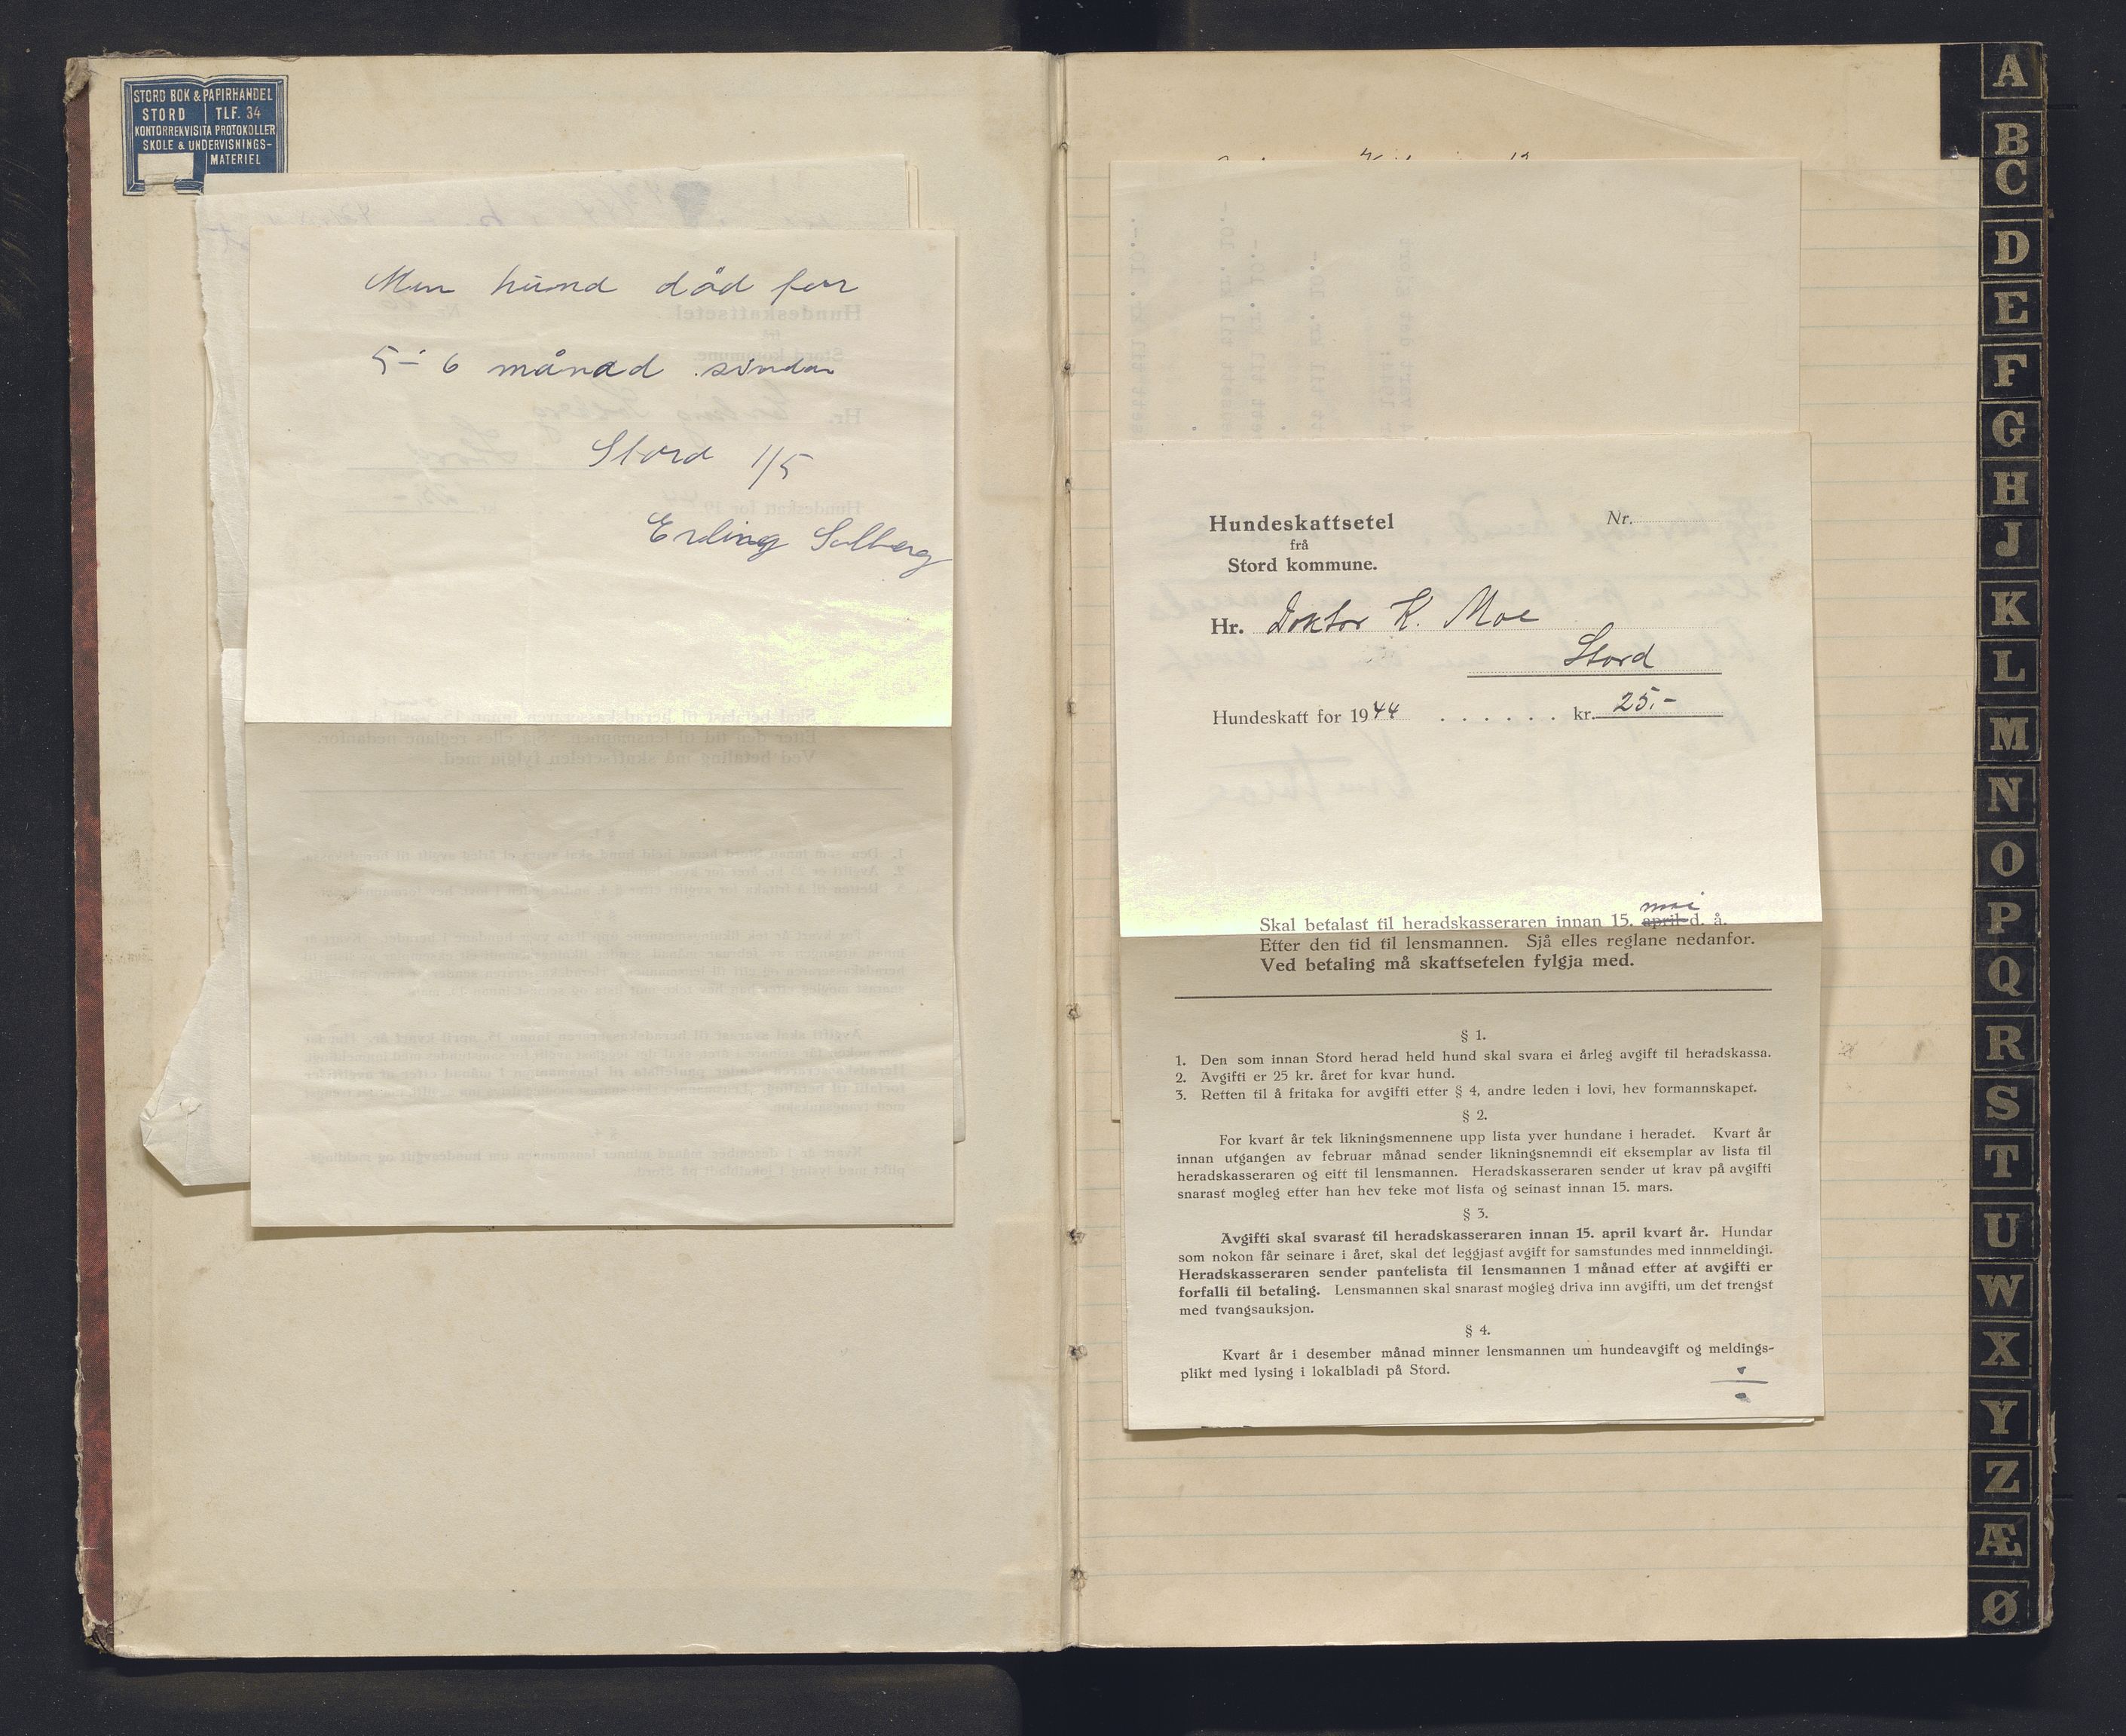 STORD BOK & PAPIRHANDEL
STORD TLF. 34
KONTORREKVISITA PROTOKOLLER
SKOLE & UNDERVISNINGS-
MATERIEL
Min hund död for
5 - 6 månad sindan
Stord 1/5
Erling Solberg
Hundeskattsetel
Nr.
frå
Stord kommune.
Hr. Doktor K. Moe
Stord
Hundeskatt for 1944 . . . . . . kr. 25.-
mai
Skal betalast til heradskasseraren innan 15. april d. å.
Etter den tid til lensmannen. Sjå elles reglane nedanfor.
Ved betaling må skattsetelen fylgja med.
§ 1.
1. Den som innan Stord herad held hund skal svara ei årleg avgift til heradskassa.
2. Avgifti er 25 kr. året for kvar hund.
3. Retten til å fritaka for avgifti etter § 4, andre leden i lovi, hev formannskapet.
§ 2.
For kvart år tek likningsmennene upp lista yver hundane i heradet. Kvart år
innan utgangen av februar månad sender likningsnemndi eit eksemplar av lista til
heradskasseraren og eitt til lensmannen. Heradskasseraren sender ut krav på avgifti
snarast mogleg etter han hev teke mot lista og seinast innan 15. mars.
§ 3.
Avgifti skal svarast til heradskasseraren innan 15. april kvart år. Hundar
som nokon får seinare i året, skal det leggjast avgift for samstundes med innmeldingi.
Heradskasseraren sender pantelista til lensmannen 1 månad etter at avgifti er
forfalli til betaling. Lensmannen skal snarast mogleg driva inn avgifti, um det trengst
med tvangsauksjon.
§ 4.
Kvart år i desember månad minner lensmannen um hundeavgift og meldings-
plikt med lysing i lokalbladi på Stord.
A
B
C
D
E
F
G
H
J
K
L
M
N
O
P
Q
R
S
T
U
W
X
Y
Z
Æ
Ø